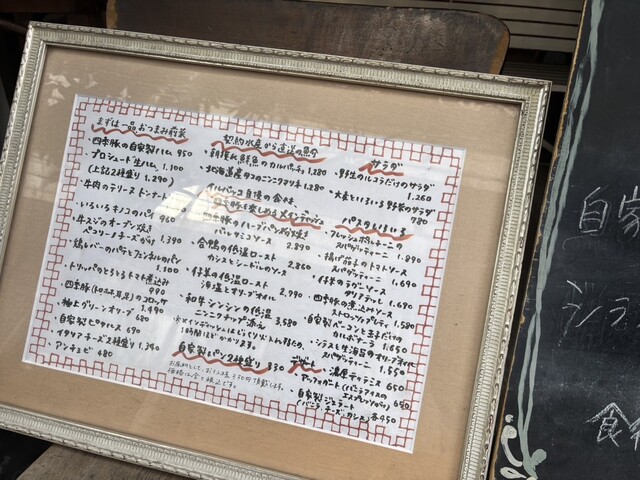 まずは一品おつまみ前菜
・四季豚の自家製ハム 950
・プロシュート 生ハム 1,100
(上記2種盛り) 1,290
・牛肉のテリーヌ
・いろいろキノコのパイ 960
・牛スジのオーブン焼き
ペコリーノチーズがけ 1,390
・鶏レバーのパテと
1,100
・トリッパのとろとろトマト煮込み 990
・四季豚のコロッケ 1,490
・極上グリーンオリーブ 680
・自家製ピクルス 690
・イタリアチーズ2種盛り 1,390
・アンチョビ 480
契約水産から直送の魚介
・朝採れ鮮魚のカルパッチョ 1,280
・北海道産タコのニンニクマリネ 1,280
自慢の
・四季豚のハーブパン粉焼き
バルサミコソース 2,890
・合鴨の低温ロースト
カシスとシードルのソース 2,860
・仔羊の低温ロースト
海塩とオリーブオイル 2,990
・和牛シンシンの低温 3,580
ニンニクチップ添え
※メインディッシュはじっくり火入れするため、
1時間ほどかかります。
自家製パン2種盛り 330
お席料として、お1人様330円頂戴します。
価格は全て税込です。
サラダ
・野生のルコラだけのサラダ
1,260
・大麦といろいろ野菜のサラダ
780
パスタいろいろ
・フレッシュポルチーニの
スパゲッティーニ 1,890
・揚げ茄子のトマトソース
スパゲッティーニ 1,690
・仔羊のラグーソース
タリアテッレ 1,690
・四季豚の煮込みソース
ストロッツァプレティ 1,580
・自家製ベーコンと玉子だけの
カルボナーラ 1,650
・シラスと生海苔のオリーブオイル
スパゲッティーニ 1,550
デザート
・濃厚ティラミス 650
・アッフォガート(バニラアイスの
エスプレッソがけ) 650
・自家製ジェラート
(バニラ、チーズ、カシス) 各450
自家
ジラ
食